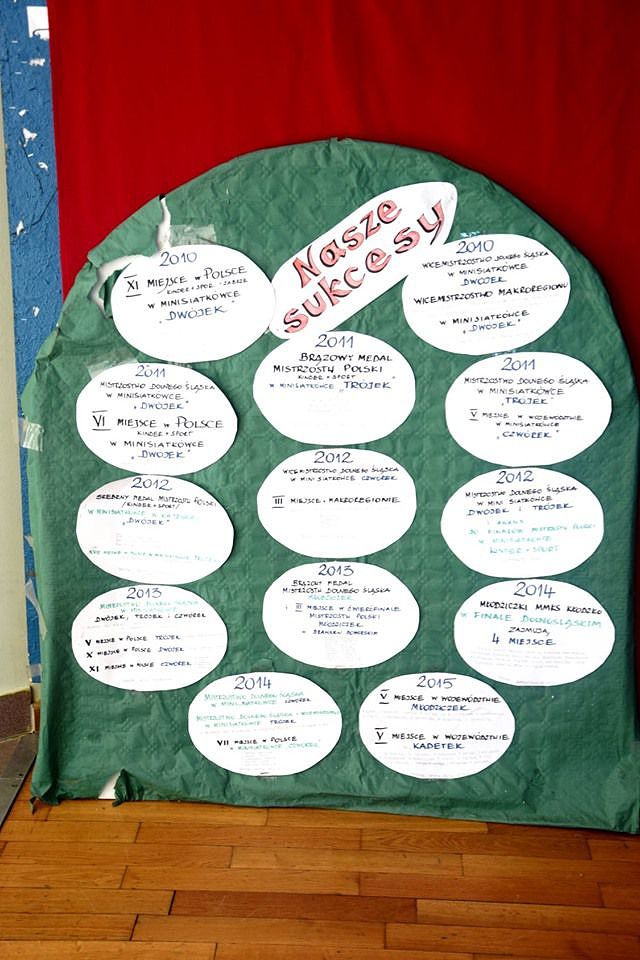 Nasze
sukcesy
2010
XI MIEJSCE W POLSCE
KINDER + SPORT
W MINISIATKÓWCE
„DWÓJEK"
2010
WICEMISTRZOSTWO DOLNEGO ŚLĄSKA
W MINISIATKÓWCE
DWÓJEK
WICEMISTRZOSTWO MAKROREGIONU
W MINISIATKÓWCE
„DWÓJEK"
2011
MISTRZOSTWO DOLNEGO ŚLĄSKA
W MINISIATKÓWCE
„DWÓJEK"
VI MIEJSCE W POLSCE
KINDER + SPORT
W MINISIATKÓWCE
„DWÓJEK"
2011
BRĄZOWY MEDAL
MISTRZOSTW POLSKI
KINDER + SPORT
W MINISIATKÓWCE „TRÓJEK"
2011
MISTRZOSTWO DOLNEGO ŚLĄSKA
W MINISIATKÓWCE
„TRÓJEK"
V MIEJSCE W WOJEWÓDZTWIE
W MINISIATKÓWCE
„CZWÓREK"
2012
SREBRNY MEDAL MISTRZOSTW POLSKI
/KINDER + SPORT/
W MINISIATKÓWCE W KATEGORII
„DWÓJEK"
2012
WICEMISTRZOSTWO DOLNEGO ŚLĄSKA
W MINI SIATKÓWCE CZWÓREK
III MIEJSCE W MAKROREGIONIE
2012
MISTRZOSTWO DOLNEGO ŚLĄSKA
W MINI SIATKÓWCE
DWÓJEK I TRÓJEK
I AWANS
DO FINAŁÓW MISTRZOSTW POLSKI
W MINISIATKÓWCE
KINDER + SPORT
2013
MISTRZOSTWO DOLNEGO ŚLĄSKA
W MINISIATKÓWCE
DWÓJEK, TRÓJEK I CZWÓREK
V MIEJSCE W POLSCE TRÓJEK
X MIEJSCE W POLSCE DWÓJEK
XI MIEJSCE W POLSCE CZWÓREK
2013
BRĄZOWY MEDAL
MISTRZOSTW DOLNEGO ŚLĄSKA
MŁODZICZEK
I III MIEJSCE W ĆWIERĆFINALE
MISTRZOSTW POLSKI
MŁODZICZEK
2014
MŁODZICZKI MMKS KŁODZKO
W FINALE DOLNOŚLĄSKIM
ZAJMUJĄ
4 MIEJSCE
2014
MISTRZOSTWO DOLNEGO ŚLĄSKA
W MINISIATKÓWCE CZWÓREK
W MINISIATKÓWCE TRÓJEK
VII MIEJSCE W POLSCE
W MINISIATKÓWCE CZWÓREK
2015
V MIEJSCE W WOJEWÓDZTWIE
MŁODZICZEK
V MIEJSCE W WOJEWÓDZTWIE
KADETEK